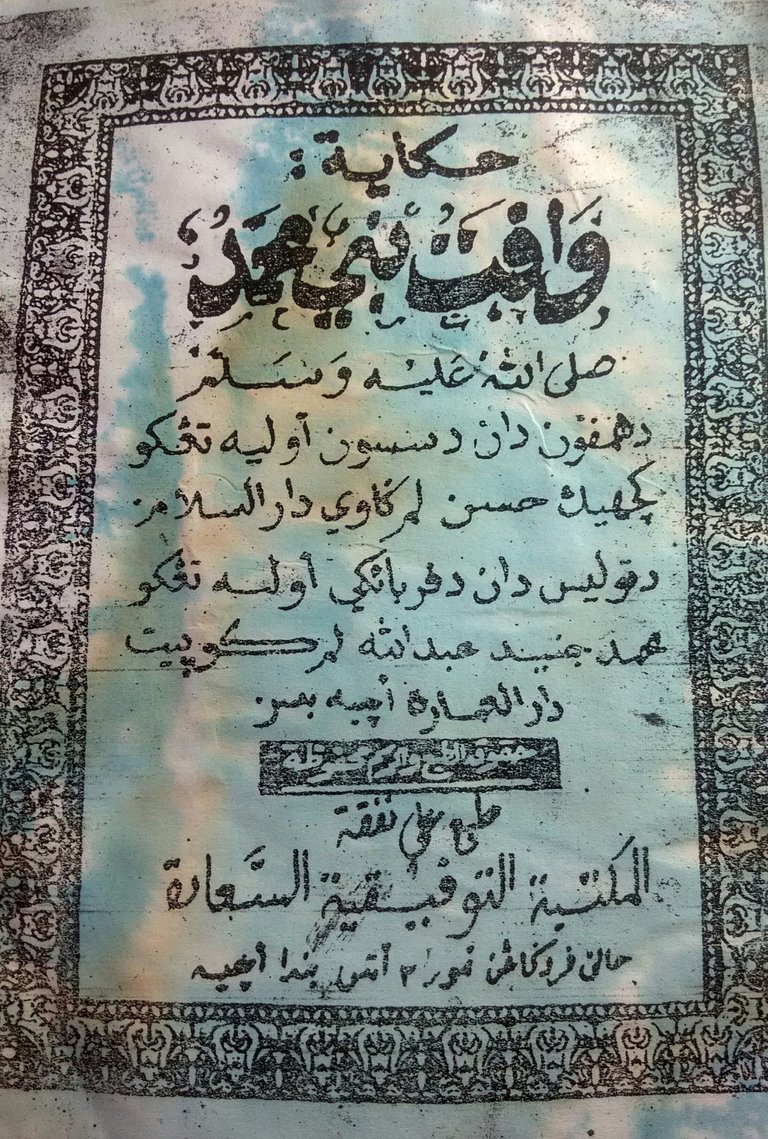 حكاية :
وَافَتْ نبي محمّدْ
صلى اللّه عَليْه وَسَلم
دهمفون دان دسسون أوليه تڠكو
كچهيك حسن لمركاوي دارالسلام
دتوليس دان دفرباڽكي أوليه تڠكو
محمد جنيد عبداللّه لمركوييت
دارالعمارة أچيه بسر
حقوق الطبع والرسم محفوظة
طبع على نفقة
المكتبة التوفيقية السّعادة
جالن فرداڬاڠن نمور ٣ أتس بندا أچيه